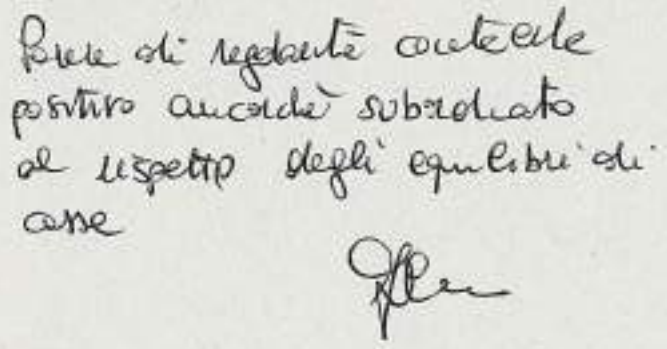 Parere di regolarità contabile
positivo ancorché subordinato
al rispetto degli equilibri di
cassa